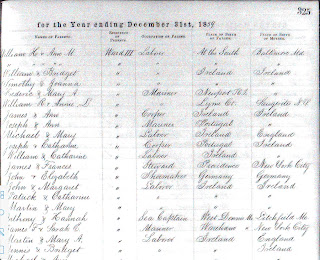 325
for the Year ending December 31st, 1859
NAMES OF PARENTS. RESIDENCE OF PARENTS. OCCUPATION OF FATHER. PLACE OF BIRTH OF FATHER. PLACE OF BIRTH OF MOTHER.
William H & Ann M. Ward III Laborer At the South Baltimore Md
" " " " " " "
William & Bridget " " Ireland Ireland
Timothy & Johanna " " " "
Frederic & Mary A. " Mariner Newport R.I.
William H. & Anna D. " " Lyme Ct.
James & Ann " Cooper Ireland Ireland
Joseph & Ann " Mariner Portugal "
Michael & Mary " Laborer Ireland England
Joseph & Catharine " Cooper Portugal Ireland
William & Catharine " Laborer Ireland "
James & Frances " Steward Providence New York City
John & Elizabeth " Shoemaker Germany Germany
John & Margaret " Laborer Ireland Ireland
Patrick & Catharine " " " "
Martin & Mary " " " "
& Hannah " Sea Captain West Litchfield Me
James & Sarah " Mariner Wareham New York City
Martin & Mary A. " Laborer Ireland England
& Bridget " " " Ireland